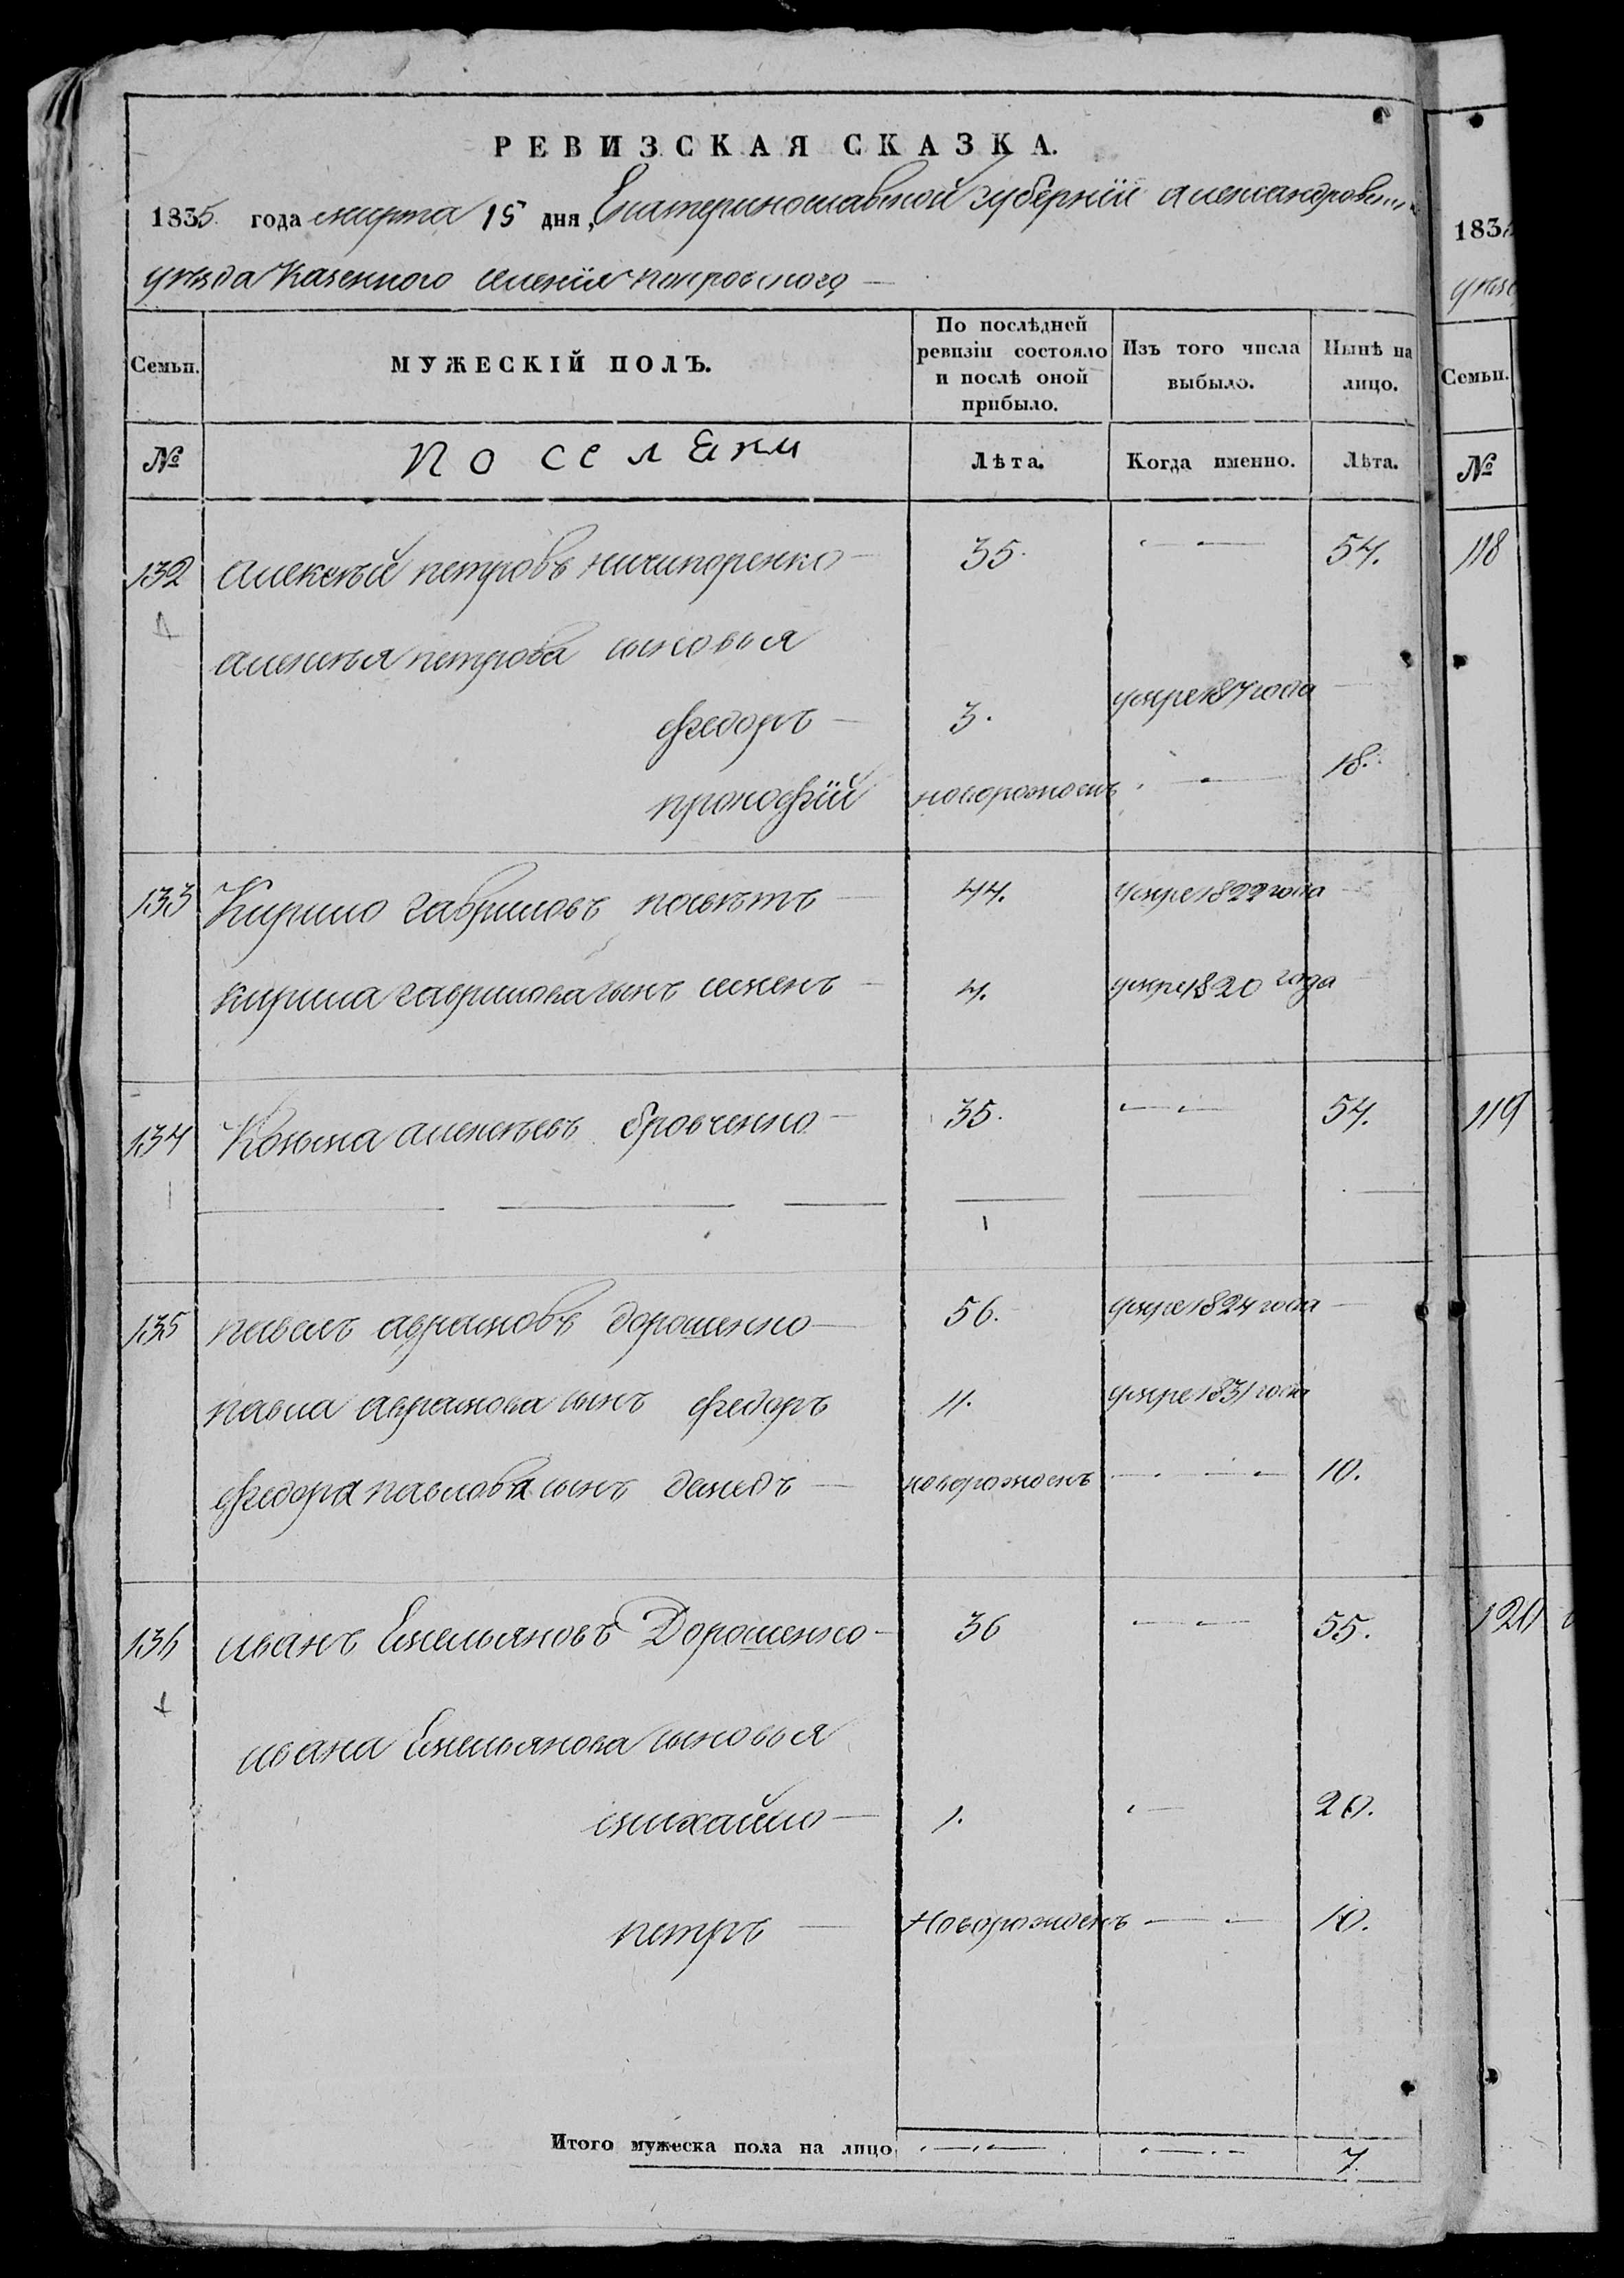 РЕВИЗСКАЯ СКАЗКА.
1835 года марта 15 дня, Екатеринославской губернїи александровск
уѣзда казенного селенїя покровского
Семьи. МУЖЕСКІЙ ПОЛЪ. По послѣдней ревизіи состояло и послѣ оной прибыло. Изъ того числа выбыло. Нынѣ на лицо.
№ поселяни Лѣта. Когда именно. Лѣта.
132 алексѣй петровъ ничипоренко 35. 54.
алексѣя петрова сыновья
федоръ 3. умре 1817 года
прокофїй новорожденъ 18.
133 Кирило гавриловъ 44. умре 1822 года
кирила гаврилова сынъ семенъ 4. умре 1820 года
134 Козьма алексѣевъ бровченко 35. 54.
135 павелъ аврамовъ дорошенко 56. умре 1824 года
павла аврамова сынъ федоръ 11. умре 1831 года
федора павлова сынъ демидъ новорожденъ 10.
136 иванъ Емельяновъ Дорошенко 36 55.
ивана Емельянова сыновья
михайло 1. 20.
петръ новорожденъ 10.
Итого мужеска пола на лицо 7.
183
уѣзд
Семьи.
№
118
119
120